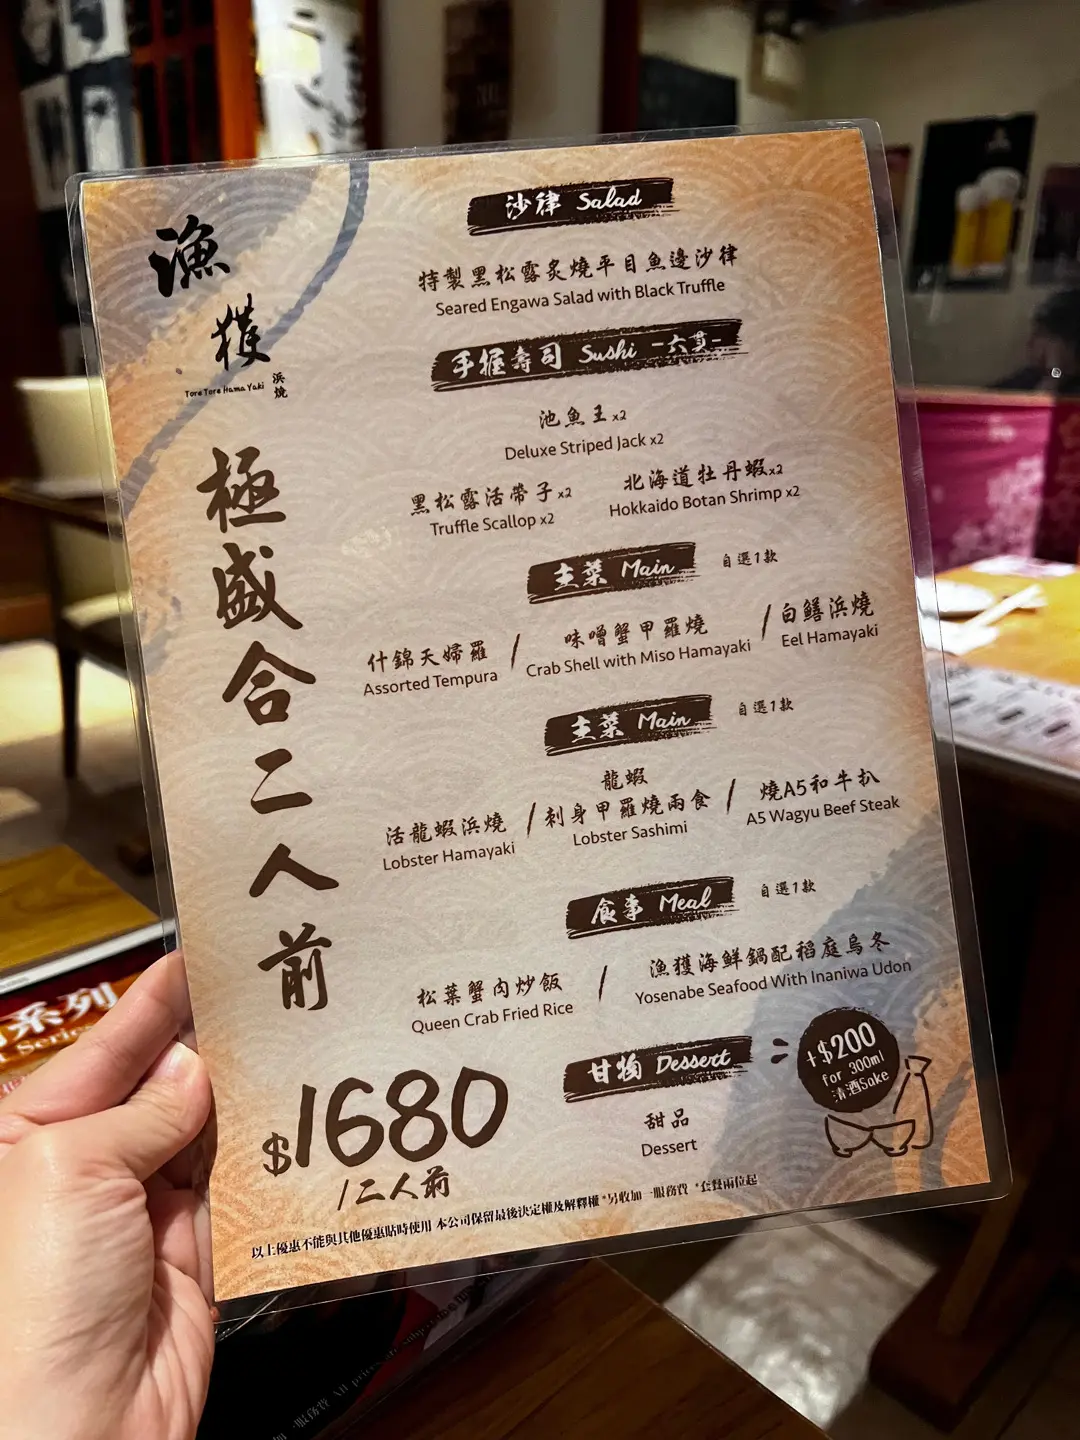 漁獲
Tore Tore Hama Yaki 浜燒
極盛合二人前
沙律 Salad
特製黑松露炙燒平目魚邊沙律
Seared Engawa Salad with Black Truffle
手握壽司 Sushi -六貫-
池魚王x2
Deluxe Striped Jack x2
黑松露活帶子x2
Truffle Scallop x2
北海道牡丹蝦x2
Hokkaido Botan Shrimp x2
主菜 Main 自選1款
什錦天婦羅 / 味噌蟹甲羅燒 / 白鱔浜燒
Assorted Tempura Crab Shell with Miso Hamayaki Eel Hamayaki
主菜 Main 自選1款
龍蝦
活龍蝦浜燒 / 刺身甲羅燒兩食 / 燒A5和牛扒
Lobster Hamayaki Lobster Sashimi A5 Wagyu Beef Steak
食事 Meal 自選1款
松葉蟹肉炒飯 / 漁獲海鮮鍋配稻庭烏冬
Queen Crab Fried Rice Yosenabe Seafood With Inaniwa Udon
甘物 Dessert
甜品
Dessert
+$200
for 300ml
清酒Sake
$1680
/二人前
以上優惠不能與其他優惠貼時使用 本公司保留最後決定權及解釋權 *另收加一服務費 *套餐兩位起
系列
Series
加一服務費 All prices are subject